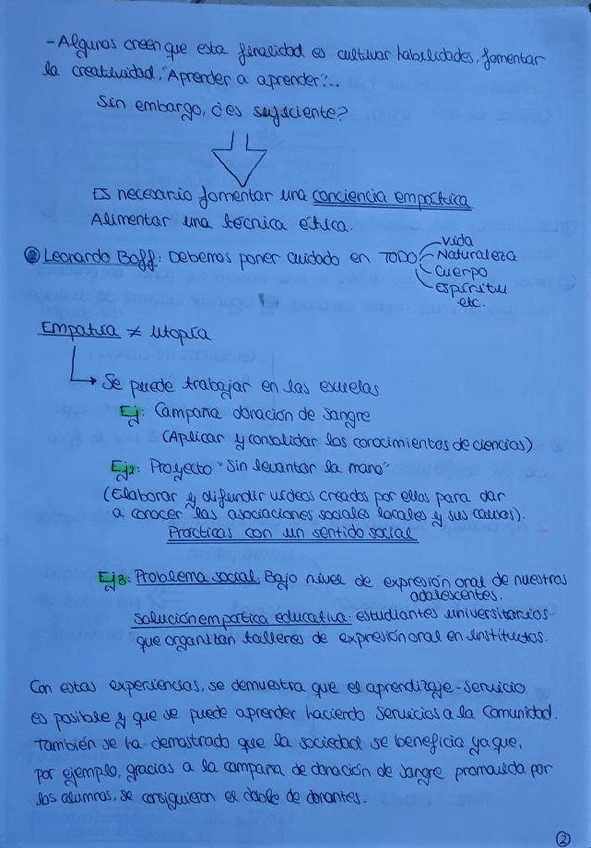 -Algunos creen que esta finalidad es cultivar habilidades, fomentar
la creatividad, "Aprender a aprender"...
Sin embargo, ¿es suficiente?
Es necesario fomentar una conciencia empática
Alimentar una técnica ética.
② Leonardo Boff: Debemos poner cuidado en TODO
vida
Naturaleza
Cuerpo
espíritu
etc.
Empatía ≠ utopía
Se puede trabajar en las escuelas
Ej: Campaña donación de sangre
(Aplicar y consolidar los conocimientos de ciencias)
Ej2: Proyecto "Sin levantar la mano"
(Elaborar y difundir videos creados por ellos para dar
a conocer las asociaciones sociales locales y sus causas).
Prácticas con un sentido social
Ej3: Problema social: Bajo nivel de expresión oral de nuestros
adolescentes.
Solución empática educativa: estudiantes universitarios
que organizan talleres de expresión oral en institutos.
Con estas experiencias, se demuestra que el aprendizaje-servicio
es posible y que se puede aprender haciendo servicios a la Comunidad.
También se ha demostrado que la sociedad se beneficia ya que,
por ejemplo, gracias a la campaña de donación de sangre promovida por
los alumnos, se consiguieron el doble de donantes.
②